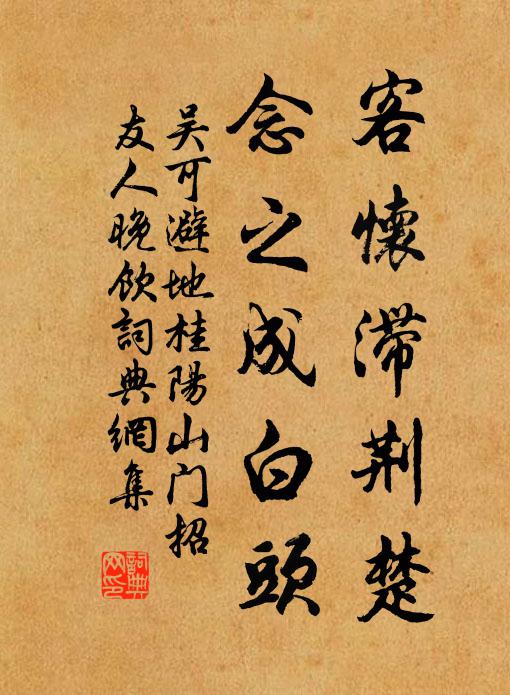 客懷滯荆楚
念之成白頭
吴可避地桂陽山门招
友人晚飲詞典網集
詞典网印